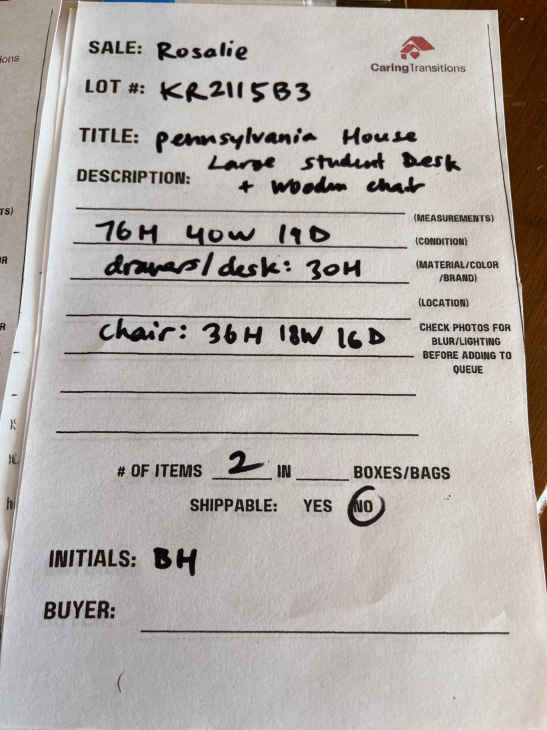 SALE: Rosalie
CaringTransitions
LOT #: KR2115B3
TITLE: Pennsylvania House
Large Student Desk
DESCRIPTION: + Wooden chair
(MEASUREMENTS)
76H 40W 19D
(CONDITION)
drawers/desk: 30H
(MATERIAL/COLOR
/BRAND)
(LOCATION)
chair: 36H 18W 16D
CHECK PHOTOS FOR
BLUR/LIGHTING
BEFORE ADDING TO
QUEUE
# OF ITEMS 2 IN BOXES/BAGS
SHIPPABLE: YES NO
INITIALS: BH
BUYER: